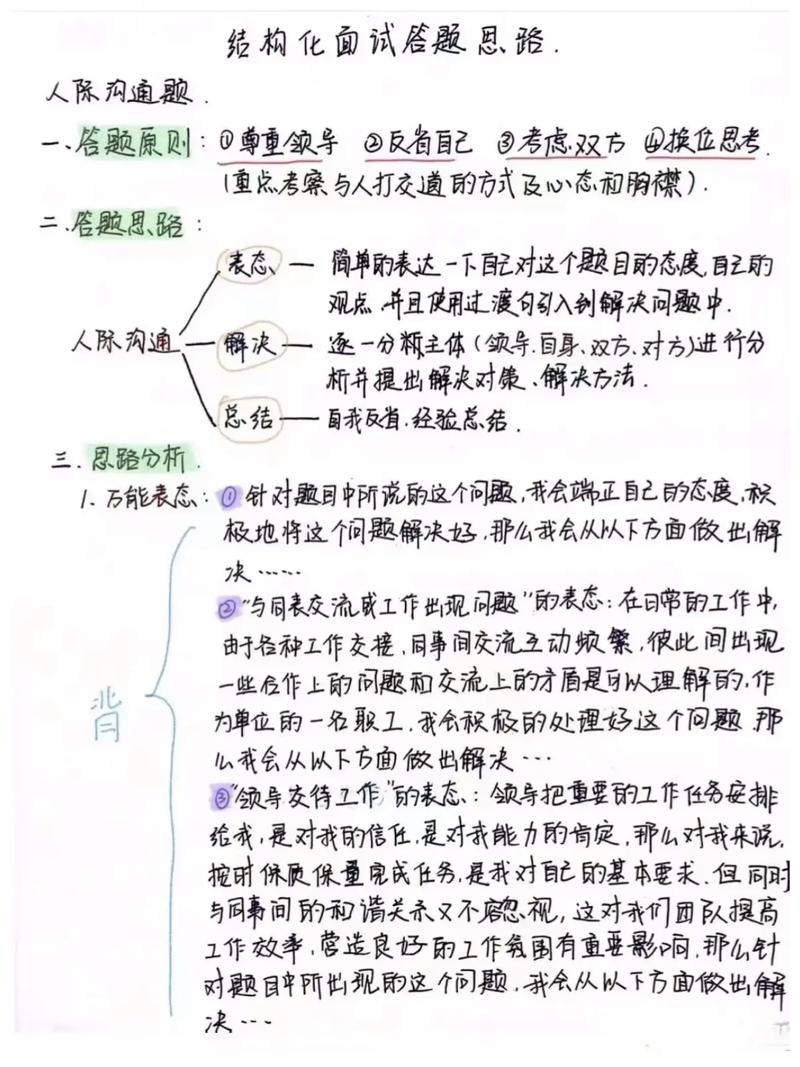 结构化面试答题思路.
人际沟通题.
一、答题原则：①尊重领导 ②反省自己 ③考虑双方 ④换位思考.
(重点考察与人打交道的方式及心态和胸襟).
二.答题思路：
表态 — 简单的表达一下自己对这个题目的态度,自己的
观点,并且使用过渡句引入到解决问题中.
人际沟通 解决 — 逐一分析主体(领导.自身、双方、对方)进行分
析并提出解决对策、解决方法.
总结 — 自我反省.经验总结.
三.思路分析.
1.万能表态：①针对题目中所说的这个问题,我会端正自己的态度,积
极地将这个问题解决好,那么我会从以下方面做出解
决……
②"与同事交流或工作出现问题"的表态：在日常的工作中,
由于各种工作交接,同事间交流互动频繁,彼此间出现
一些合作上的问题和交流上的矛盾是可以理解的,作
为单位的一名职工,我会积极的处理好这个问题,那
么我会从以下方面做出解决…
③"领导交待工作"的表态：领导把重要的工作任务安排
给我,是对我的信任,是对我能力的肯定,那么对我来说,
按时保质保量完成任务,是我对自己的基本要求.但同时
与同事间的和谐关系又不容忽视,这对我们团队提高
工作效率,营造良好的工作氛围有重要影响,那么针
对题目中所出现的这个问题,我会从以下方面做出解
决…
背